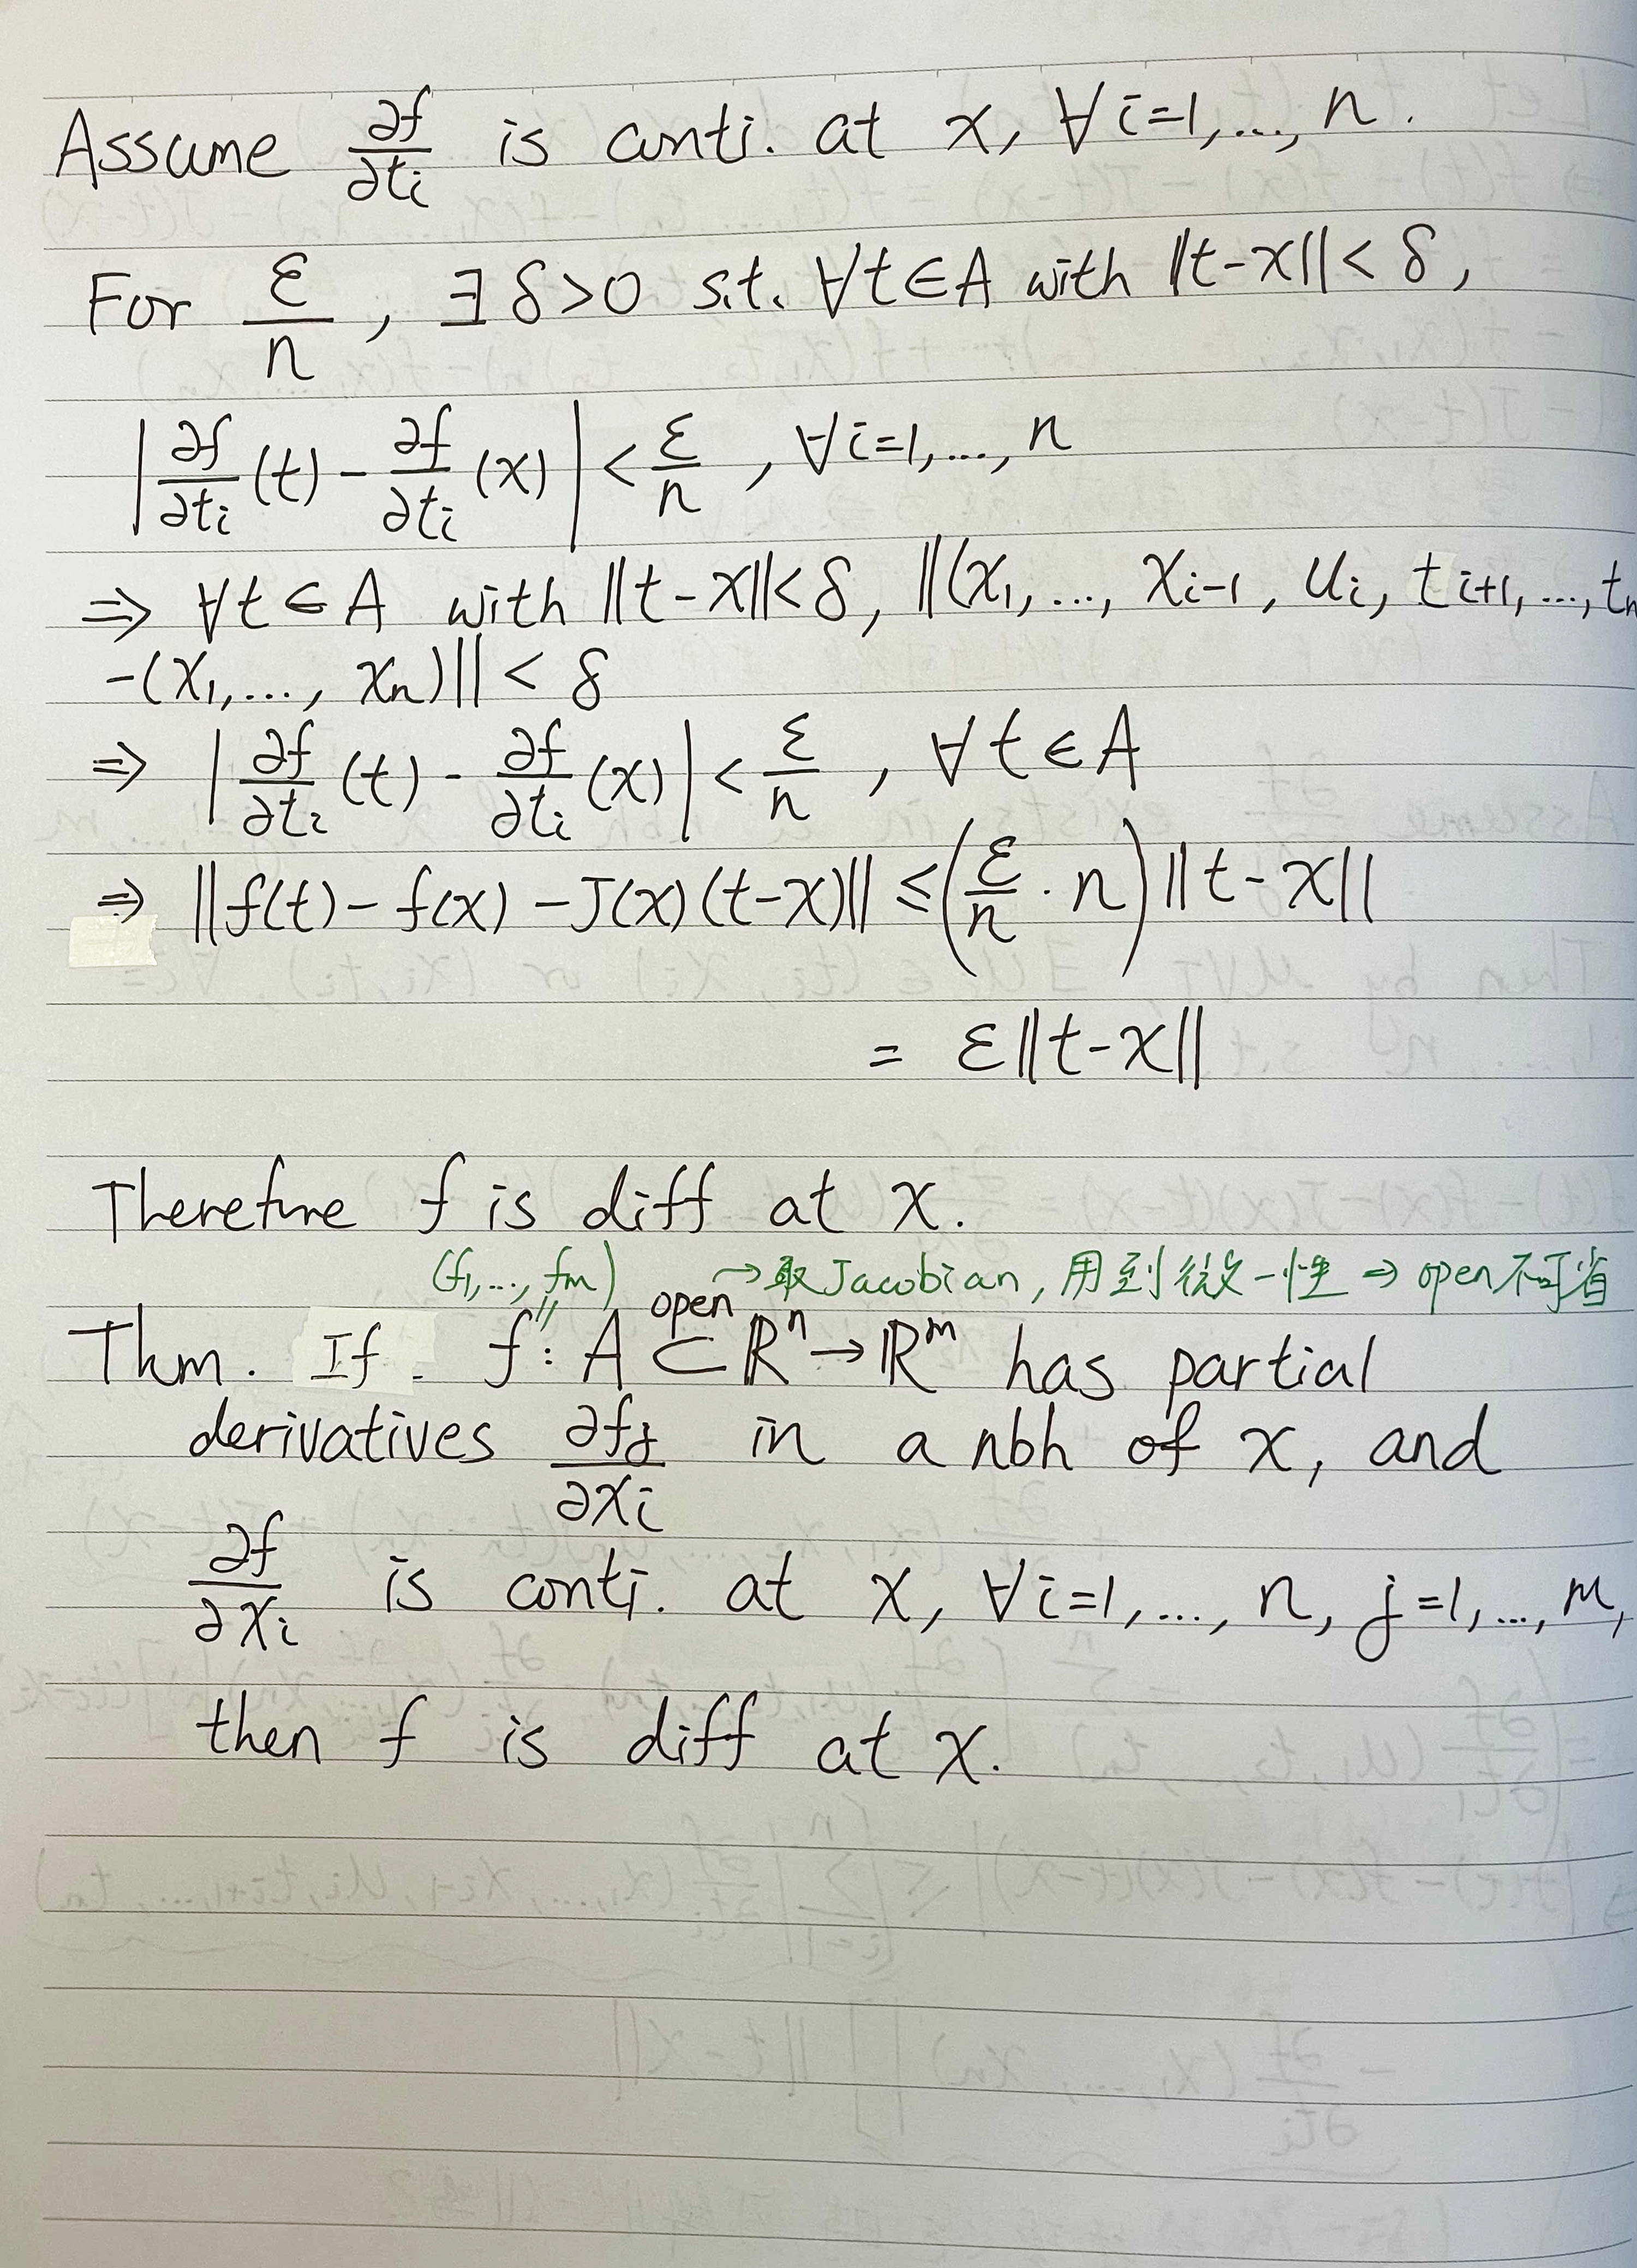 Assume ∂f/∂tᵢ is conti. at x, ∀i=1,..., n.
For ε/n, ∃ δ>0 s.t. ∀t∈A with ‖t-x‖< δ,
|∂f/∂tᵢ (t) - ∂f/∂tᵢ (x)| < ε/n , ∀i=1,..., n
⇒ ∀t∈A with ‖t-x‖<δ, ‖(x₁,..., xᵢ₋₁, uᵢ, tᵢ₊₁,..., tₙ
-(x₁,..., xₙ)‖ < δ
⇒ |∂f/∂tᵢ (t) - ∂f/∂tᵢ (x)| < ε/n , ∀t∈A
⇒ ‖f(t) - f(x) - J(x)(t-x)‖ ≤ (ε/n · n)‖t-x‖
= ε‖t-x‖
Therefore f is diff at x.
(f₁,..., fₘ) → 取Jacobian, 用到微一性 ⇒ open不可省
〃 open
Thm. If f: A ⊂ ℝⁿ → ℝᵐ has partial
derivatives ∂fⱼ/∂xᵢ in a nbh of x, and
∂f/∂xᵢ is conti. at x, ∀i=1,..., n, j=1,..., m,
then f is diff at x.